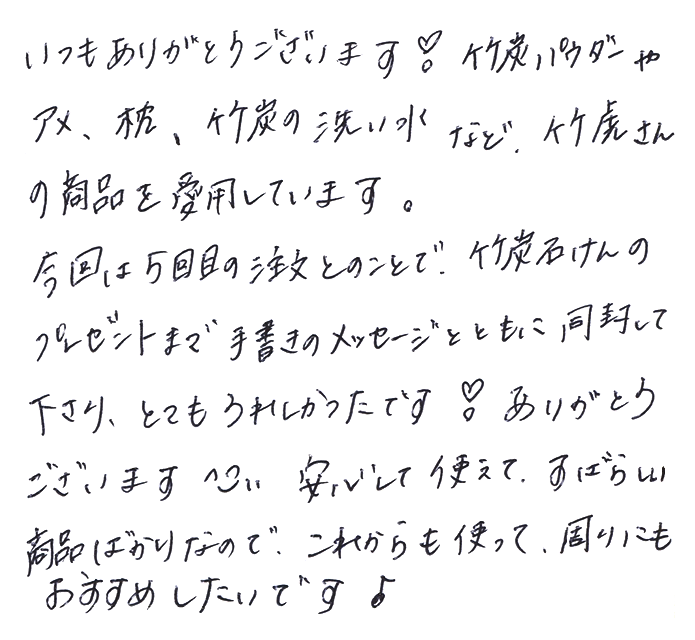 いつもありがとうございます♡ 竹炭パウダーや
アメ、枕、竹炭の洗い水 など、竹虎さん
の商品を愛用しています。
今回は5回目の注文とのことで、竹炭石けんの
プレゼントまで手書きのメッセージとともに同封して
下さり、とてもうれしかったです♡ ありがとう
ございます ^_^ 安心して使えて、すばらしい
商品ばかりなので、これからも使って、周りにも
おすすめしたいです♪